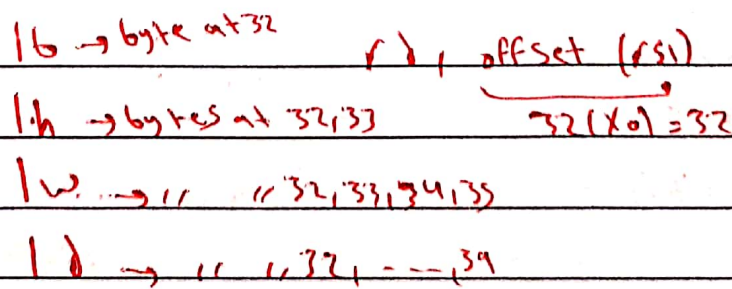 lb → byte at 32
rd, offset (rs1)
lh → bytes at 32,33
32(x0) = 32
lw → " " 32,33,34,35
ld → " " 32, ----,39